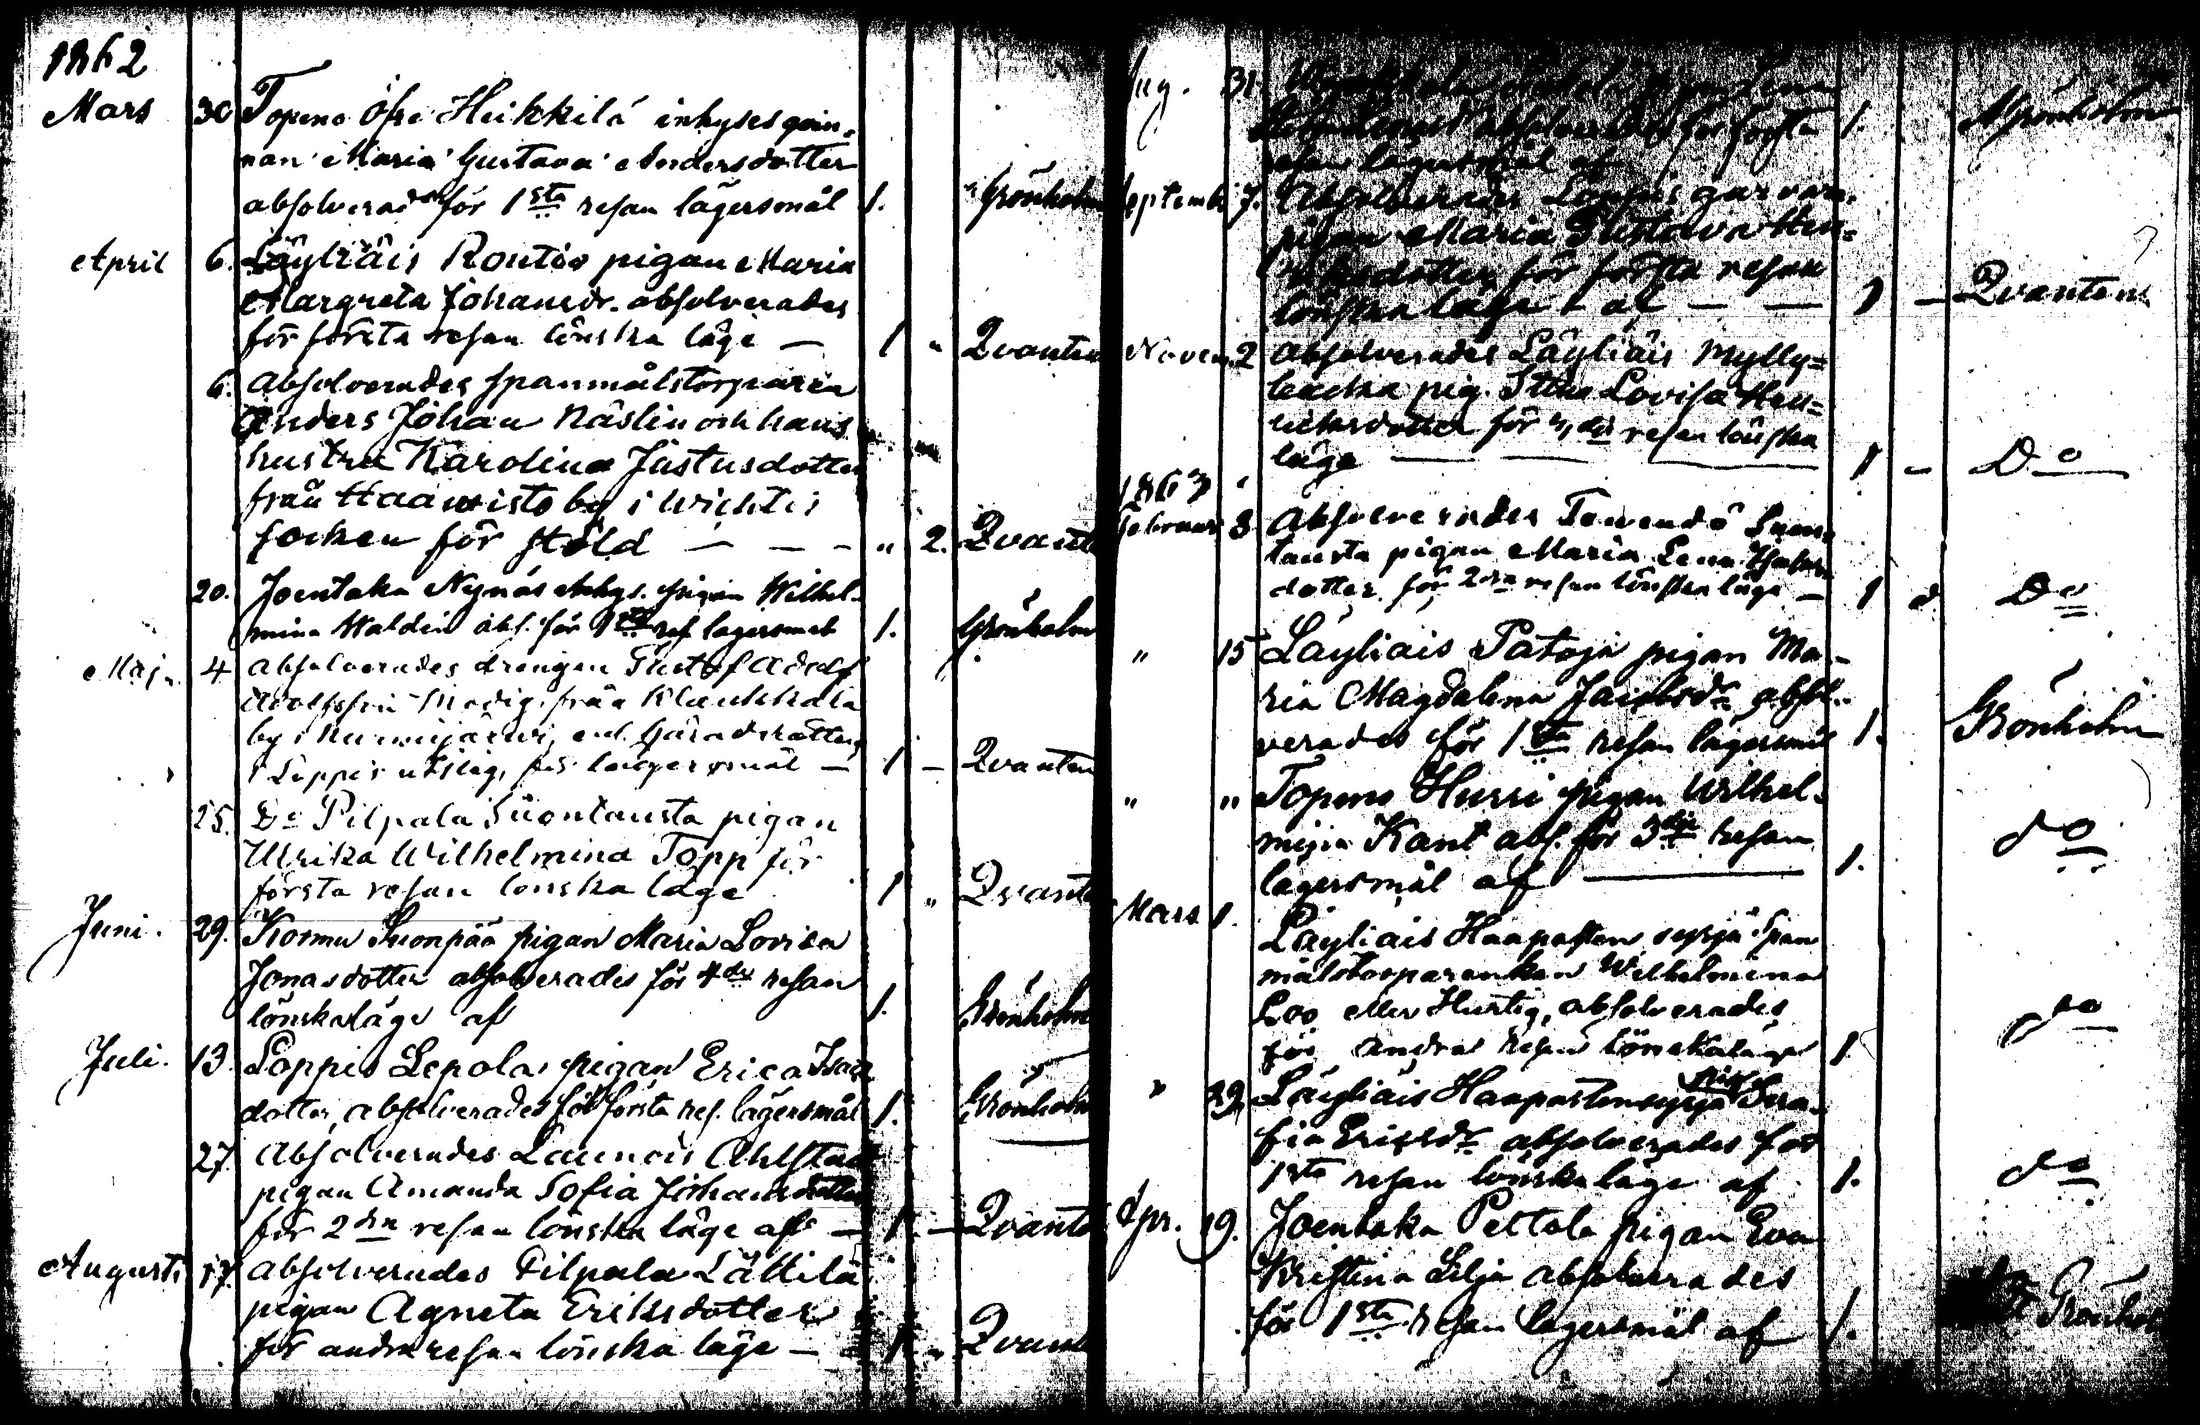 1862
Mars 30 Topeno Öfre Heikkilä inhyses qvin-
nan Maria Gustava Andersdotter
absolverad för 1sta resan lägersmål 1. Grönholm
April 6. Läyliäis Rontio pigan Maria
Margreta Johansdr. absolverades
för första resan lönska läge — 1 " Qvanten
6. Absolverades spanmålstorparen
Anders Johan Näslin och hans
hustru Karolina Justusdotter
från Haavisto by i Wichtis
socken för stöld — — — " 2. Qvanten
20. Joentaka Nynäs inhys. pigan Wilhel-
mina Waldin abs. för 1sta res. lägersmål 1. Grönholm
Maj 4 Absolverades drengen Gustaf Adolf
Adolfsson Modig från Klaukkala
by i Nurmijärvi, enl. Häradsrättens
i Loppis utslag, för lägersmål — 1 — Qvanten
25. Do Pilpala Suontausta pigan
Ulrika Wilhelmina Topp för
första resan lönska läge 1 " Qvanten
Juni. 29. Kormu Suonpää pigan Maria Lovisa
Jonasdotter absolverades för 4de resan
lönskaläge af 1. Grönholm
Juli. 13. Loppis Lepola pigan Erica Isacs
dotter, absolverades för första res. lägersmål 1. Grönholm
27. Absolverades Launois Ahlstad
pigan Amanda Sofia Johansdotter
för 2dra resan lönska läge af — 1 — Qvanten
Augusti 17. Absolverades Pilpala Lättilä
pigan Agneta Eriksdotter
för andra resan lönska läge — 1 " Qvanten
Aug. 31.
absolverades för första 1. Grönholm
resan lägersmål af
Septemb. 7. Absolverades Loppis
pigan Maria Gustava Hen-
riksdotter för första resan
lönska läge af — — 1 — Qvanten
Novem. 2 Absolverades Läyliäis Mylly-
backa pig. Stina Lovisa Hen-
riksdotter för resan lönska
läge — — — 1 — Do
1863
Februari 8 Absolverades Towendo Suon-
tausta pigan Maria Lena
dotter för 2dra resan lönska läge — 1 Do
" 15 Läyliäis Patoja pigan Ma-
ria Magdalena Jacobsdr absol-
verades för 1sta resan lägersmål 1. Grönholm
" " Topeno Hursi pigan Wilhel-
mina Kant abs. för 3dje resan
lägersmål af — 1. do
Mars 1. Läyliäis Haapasten syrjä Span
målstorparenkan Wilhelmina
Loo eller Hurtig, absolverades
för andra resan lönskaläge 1 do
" 29. Läyliäis Haapastensyrjä pig. Sera-
fia Ericsdr absolverades för
1sta resan lönskaläge af 1. do
Apr. 19. Joentaka Peltola pigan Eva
Kristina Lilja absolverades
för 1sta resan lägersmål af 1. Grönhol